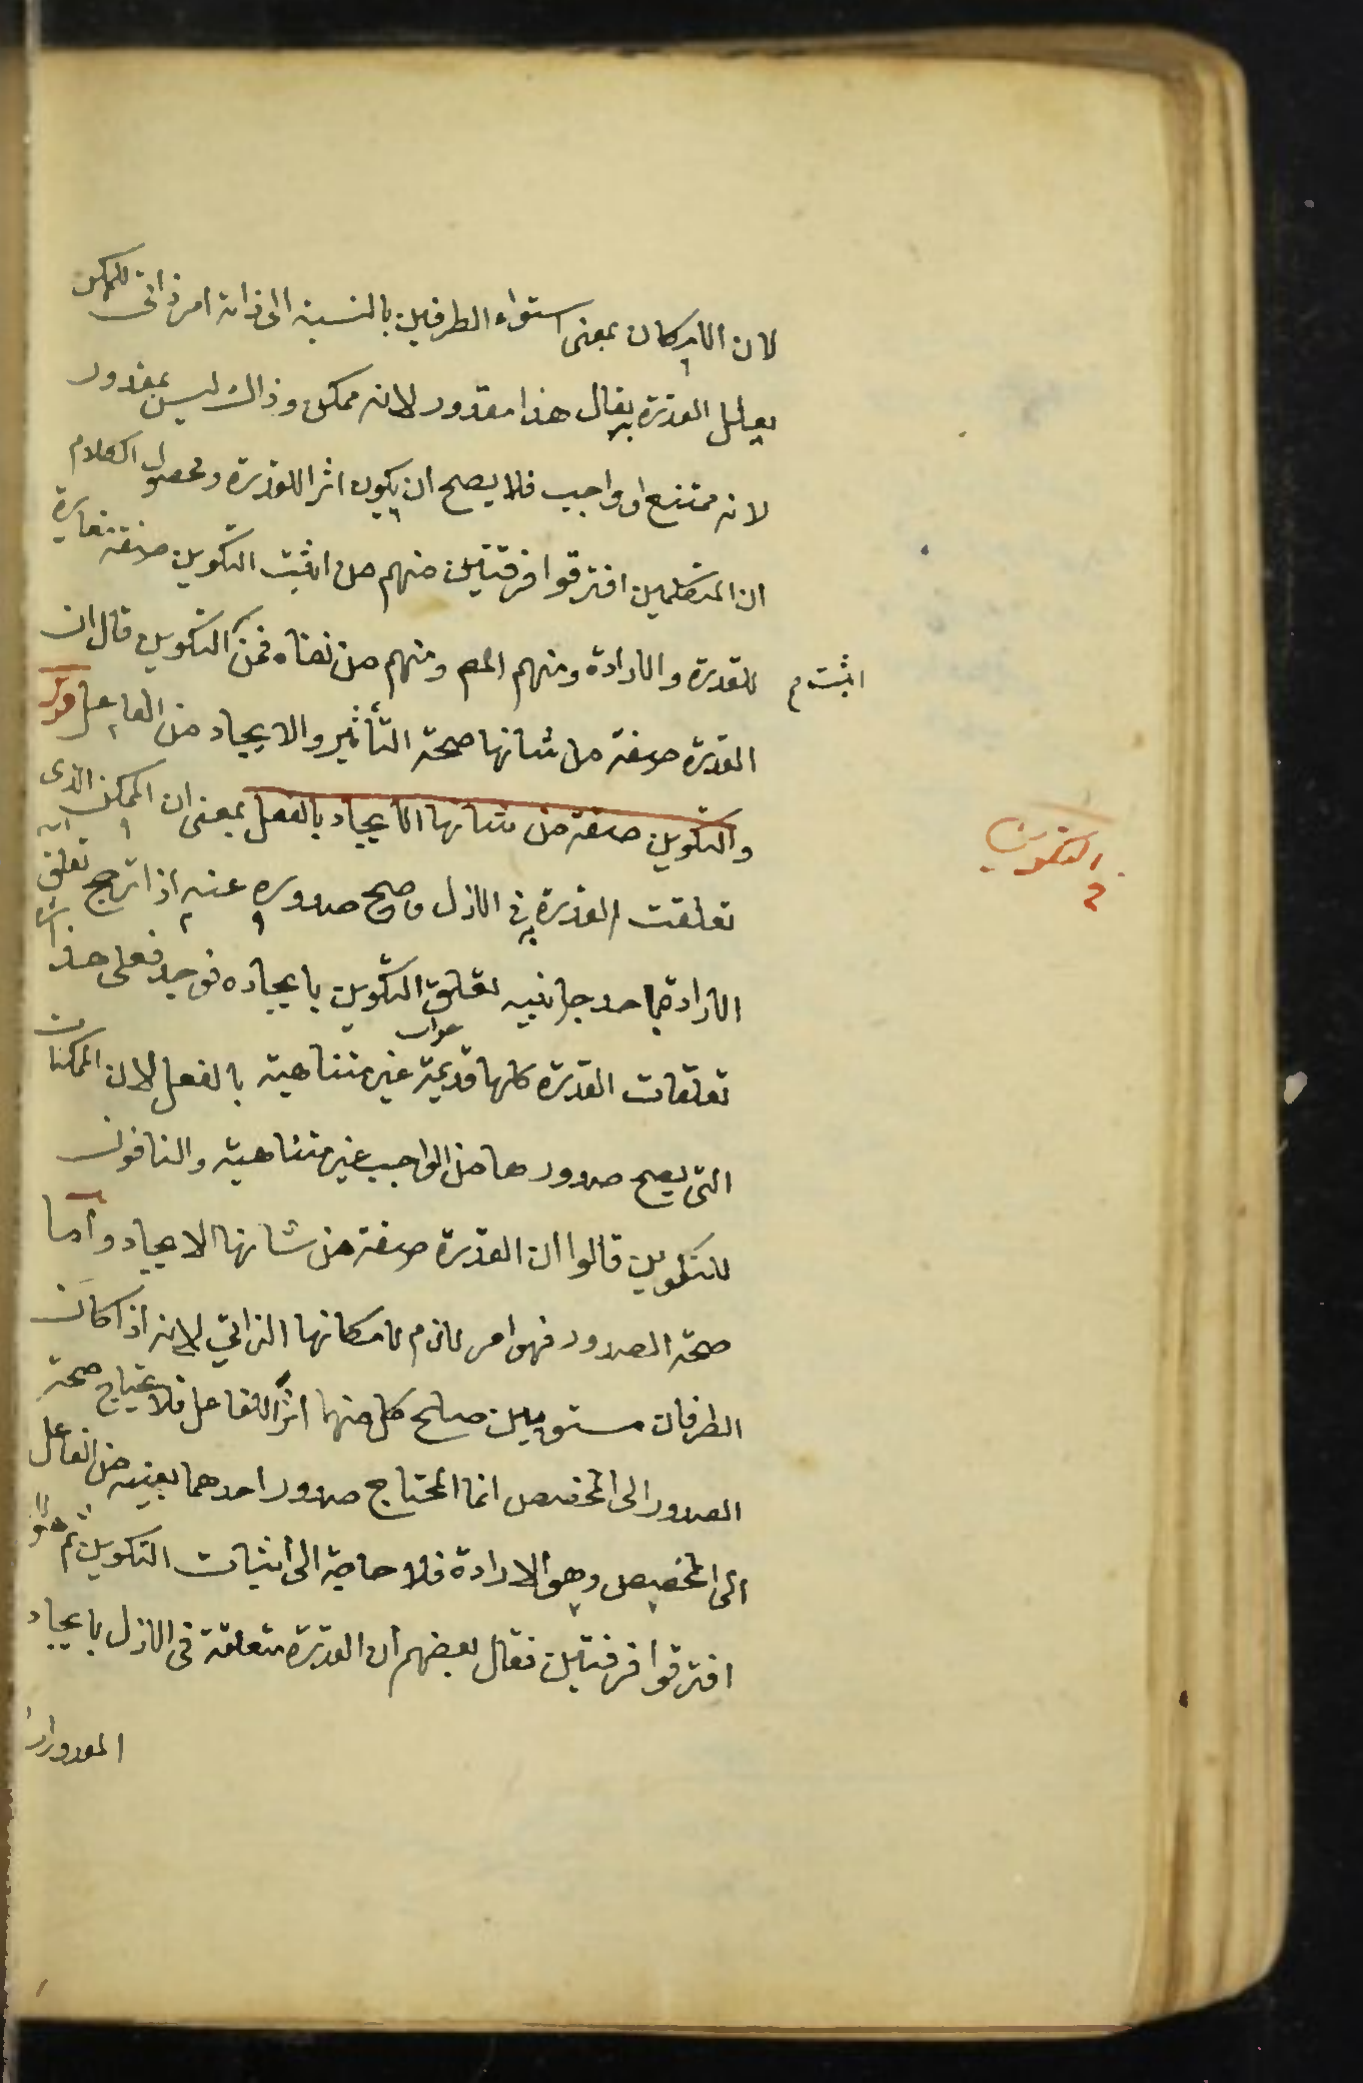 لان الامكان بمعنى استواء الطرفين بالنسبة الى ذاته امر ذاتى للممكن
يعلل القدرة به يقال هذا مقدور لانه ممكن وذاك ليس بمقدور
لانه ممتنع او واجب فلا يصح ان يكون اثرا للقدرة ومحصول الكلام
ان المتكلمين افترقوا فرقتين منهم من اثبت التكوين صفة مغايرة
للقدرة والارادة ومنهم المص ومنهم من نفاه فمن التكوين قال ان
اثبت م
القدرة صفة من شانها صحة التأثير والايجاد من الفاعل
والتكوين صفة من شانها الايجاد بالفعل بمعنى ان الممكن الذى
التكوين
تعلقت القدرة به فى الازل وصح صدوره عنه اذا ترجح تعلق
الارادة باحد جانبيه تعلق التكوين بايجاده فوجد فعلى هذا
تعلقات القدرة كلها قديمة غير متناهية بالفعل لان الممكنات
التى يصح صدورها من الواجب غير متناهية والنافون
للتكوين قالوا ان القدرة صفة من شانها الايجاد واما
صحة الصدور فهو امر لازم لامكانها الذاتي لانه اذا كان
الطرفان مستويين صلح كل منهما اثرا للفاعل فلا يحتاج صحة
الصدور الى المخصص انما المحتاج صدور احدهما بعينه من الفاعل
الى المخصص وهو الارادة فلا حاجة الى اثبات التكوين ثم هؤلاء
افترقوا فرقتين فقال بعضهم ان القدرة متعلقة فى الازل بايجاد